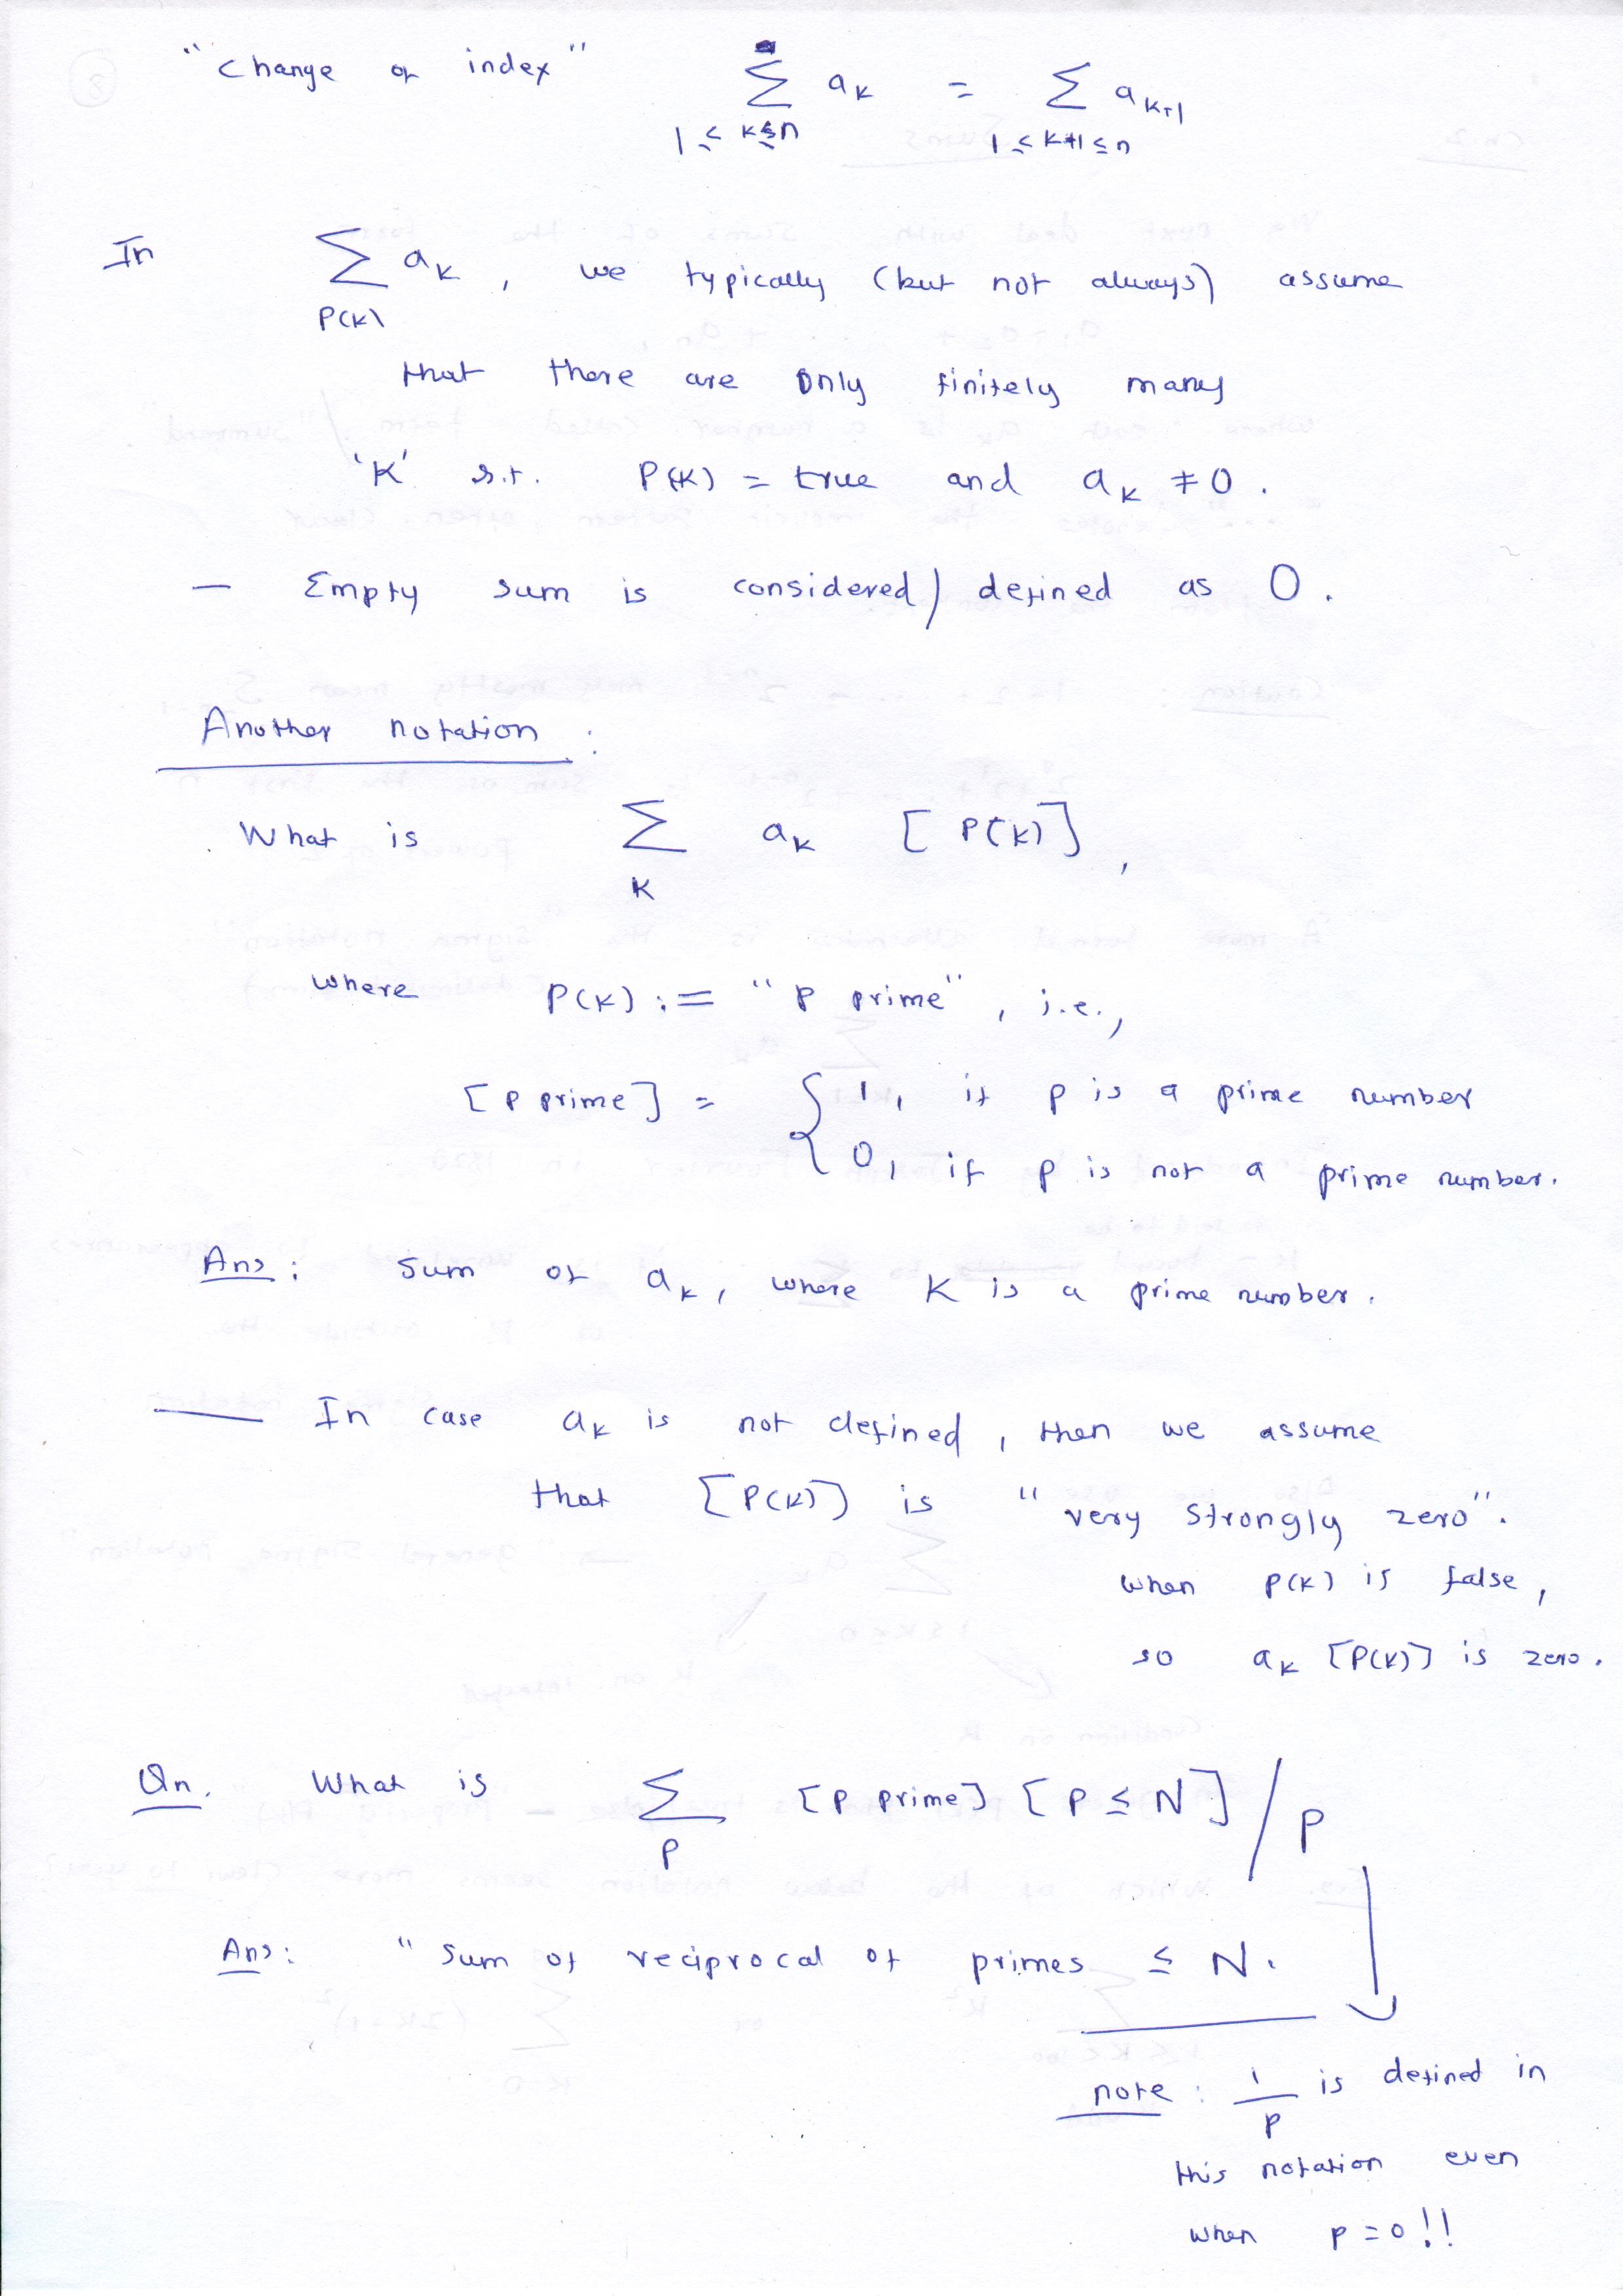 "Change of index" ∑_{1 ≤ k ≤ n} a_k = ∑_{1 ≤ k+1 ≤ n} a_{k+1}
In ∑_{P(k)} a_k , we typically (but not always) assume
that there are only finitely many
'K' s.t. P(K) = true and a_k ≠ 0 .
— Empty sum is considered / defined as 0 .
Another notation :
What is ∑_K a_k [ P(k) ] ,
where P(K) := "p prime" , i.e.,
[ p prime ] = { 1, if p is a prime number
0, if p is not a prime number.
Ans : Sum of a_k , where K is a prime number .
— In case a_k is not defined , then we assume
that [P(K)] is "very strongly zero".
when P(K) is false ,
so a_k [P(K)] is zero .
Qn. What is ∑_P [ p prime ] [ P ≤ N ] / P
Ans : " Sum of reciprocal of primes ≤ N .
note : 1/p is defined in
this notation even
when p = 0 !!